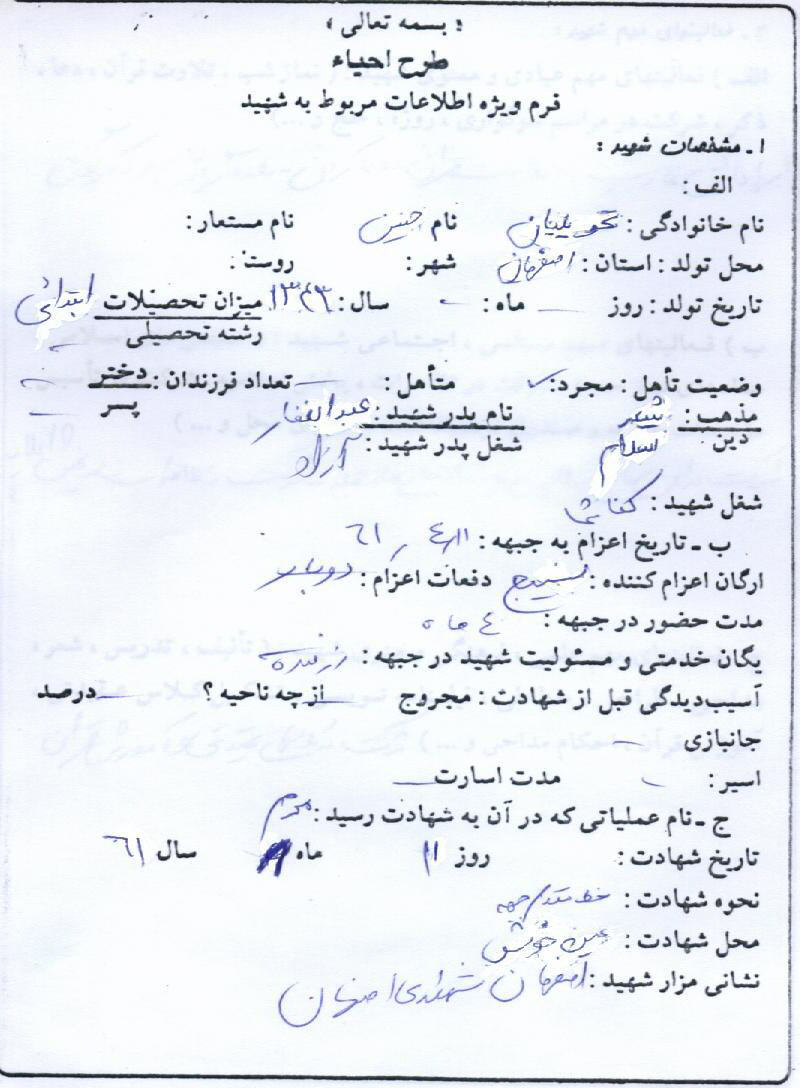 « بسمه تعالی »
طرح احیاء
فرم ویژه اطلاعات مربوط به شهید
۱ـ مشخصات شهید :
الف :
نام خانوادگی : تحویلیان نام حسین نام مستعار :
محل تولد : استان : اصفهان شهر : روستا :
تاریخ تولد : روز ــ ماه : ــ سال : ۱۳۴۳ میزان تحصیلات ابتدائی
رشته تحصیلی ــ
وضعیت تأهل : مجرد : ✓ متأهل : ــ تعداد فرزندان : دختر ــ
مذهب : شیعه نام پدر شهید : عبدالغفار پسر ــ
دین : اسلام شغل پدر شهید : آزاد
شغل شهید : کفاشی
ب ـ تاریخ اعزام به جبهه : ۶۱ , ۴/۱۱
ارگان اعزام کننده : بسیج دفعات اعزام : دوبار
مدت حضور در جبهه : ۴ ماه
یگان خدمتی و مسئولیت شهید در جبهه : رزمنده
آسیب‌دیدگی قبل از شهادت : مجروح ــ از چه ناحیه ؟ ــ درصد
جانبازی ــ
اسیر : ــ مدت اسارت ــ
ج ـ نام عملیاتی که در آن به شهادت رسید : محرم
تاریخ شهادت : روز ۱۱ ماه ۸ سال ۶۱
نحوه شهادت : خط مقدم جبهه
محل شهادت : عین خوش
نشانی مزار شهید : اصفهان شهدای اصفهان